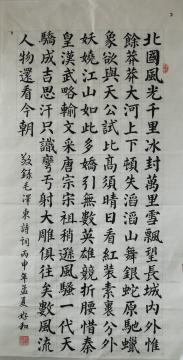 北國風光千里冰封萬里雪飄望長城內外惟
餘莽莽大河上下頓失滔滔山舞銀蛇原馳蠟
象欲與天公試比高須晴日看紅裝素裹分外
妖嬈江山如此多嬌引無數英雄競折腰惜秦
皇漢武略輸文采唐宗宋祖稍遜風騷一代天
驕成吉思汗只識彎弓射大雕俱往矣數風流
人物還看今朝 敬錄毛澤東詩詞丙申年孟夏